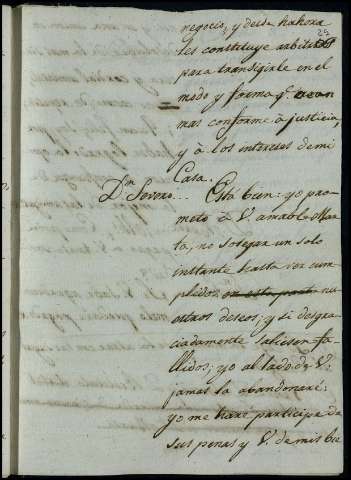 negocio, y desde hahora
29
les constituye arbitros
para transigirle en el
modo y forma q.e crean
mas conforme à justicia,
y à los intereses de mi
Casa.
Dn Severi... Està bien: yo pro-
meto à V. amable Mar-
ta, no sosegar un solo
instante hasta ver cum-
plidos en esta parte nu
estros deseos; y si desgra-
ciadamente saliesen fa-
llidos; yo al lado de V.
jamas la abandonarè:
yo me harè participe de
sus penas y V. de mis bie